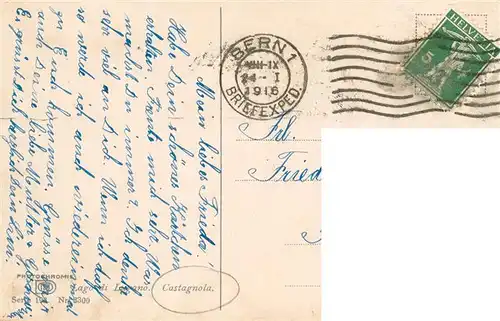 Mein liebes Frieda.
Habe Dein schönes Kärtchen
erhalten. Freute mich sehr. Was
machst Du immer? Ich denke
sehr viel an Dich. Wenn ich darf
so werde ich auch wiederum mal
zu Euch kommen. Grüsse mir
auch Deine liebe Mutter &
Es grüsst Dich herzlich Dein
BERN 1
VIII-IX
24-I
1916
BRIEFEXPED.
HELVETIA
5
Frl.
Fried
PHOTOCHROMIE
Lago di Lugano. Castagnola.
Serie 194 Nr. 3309